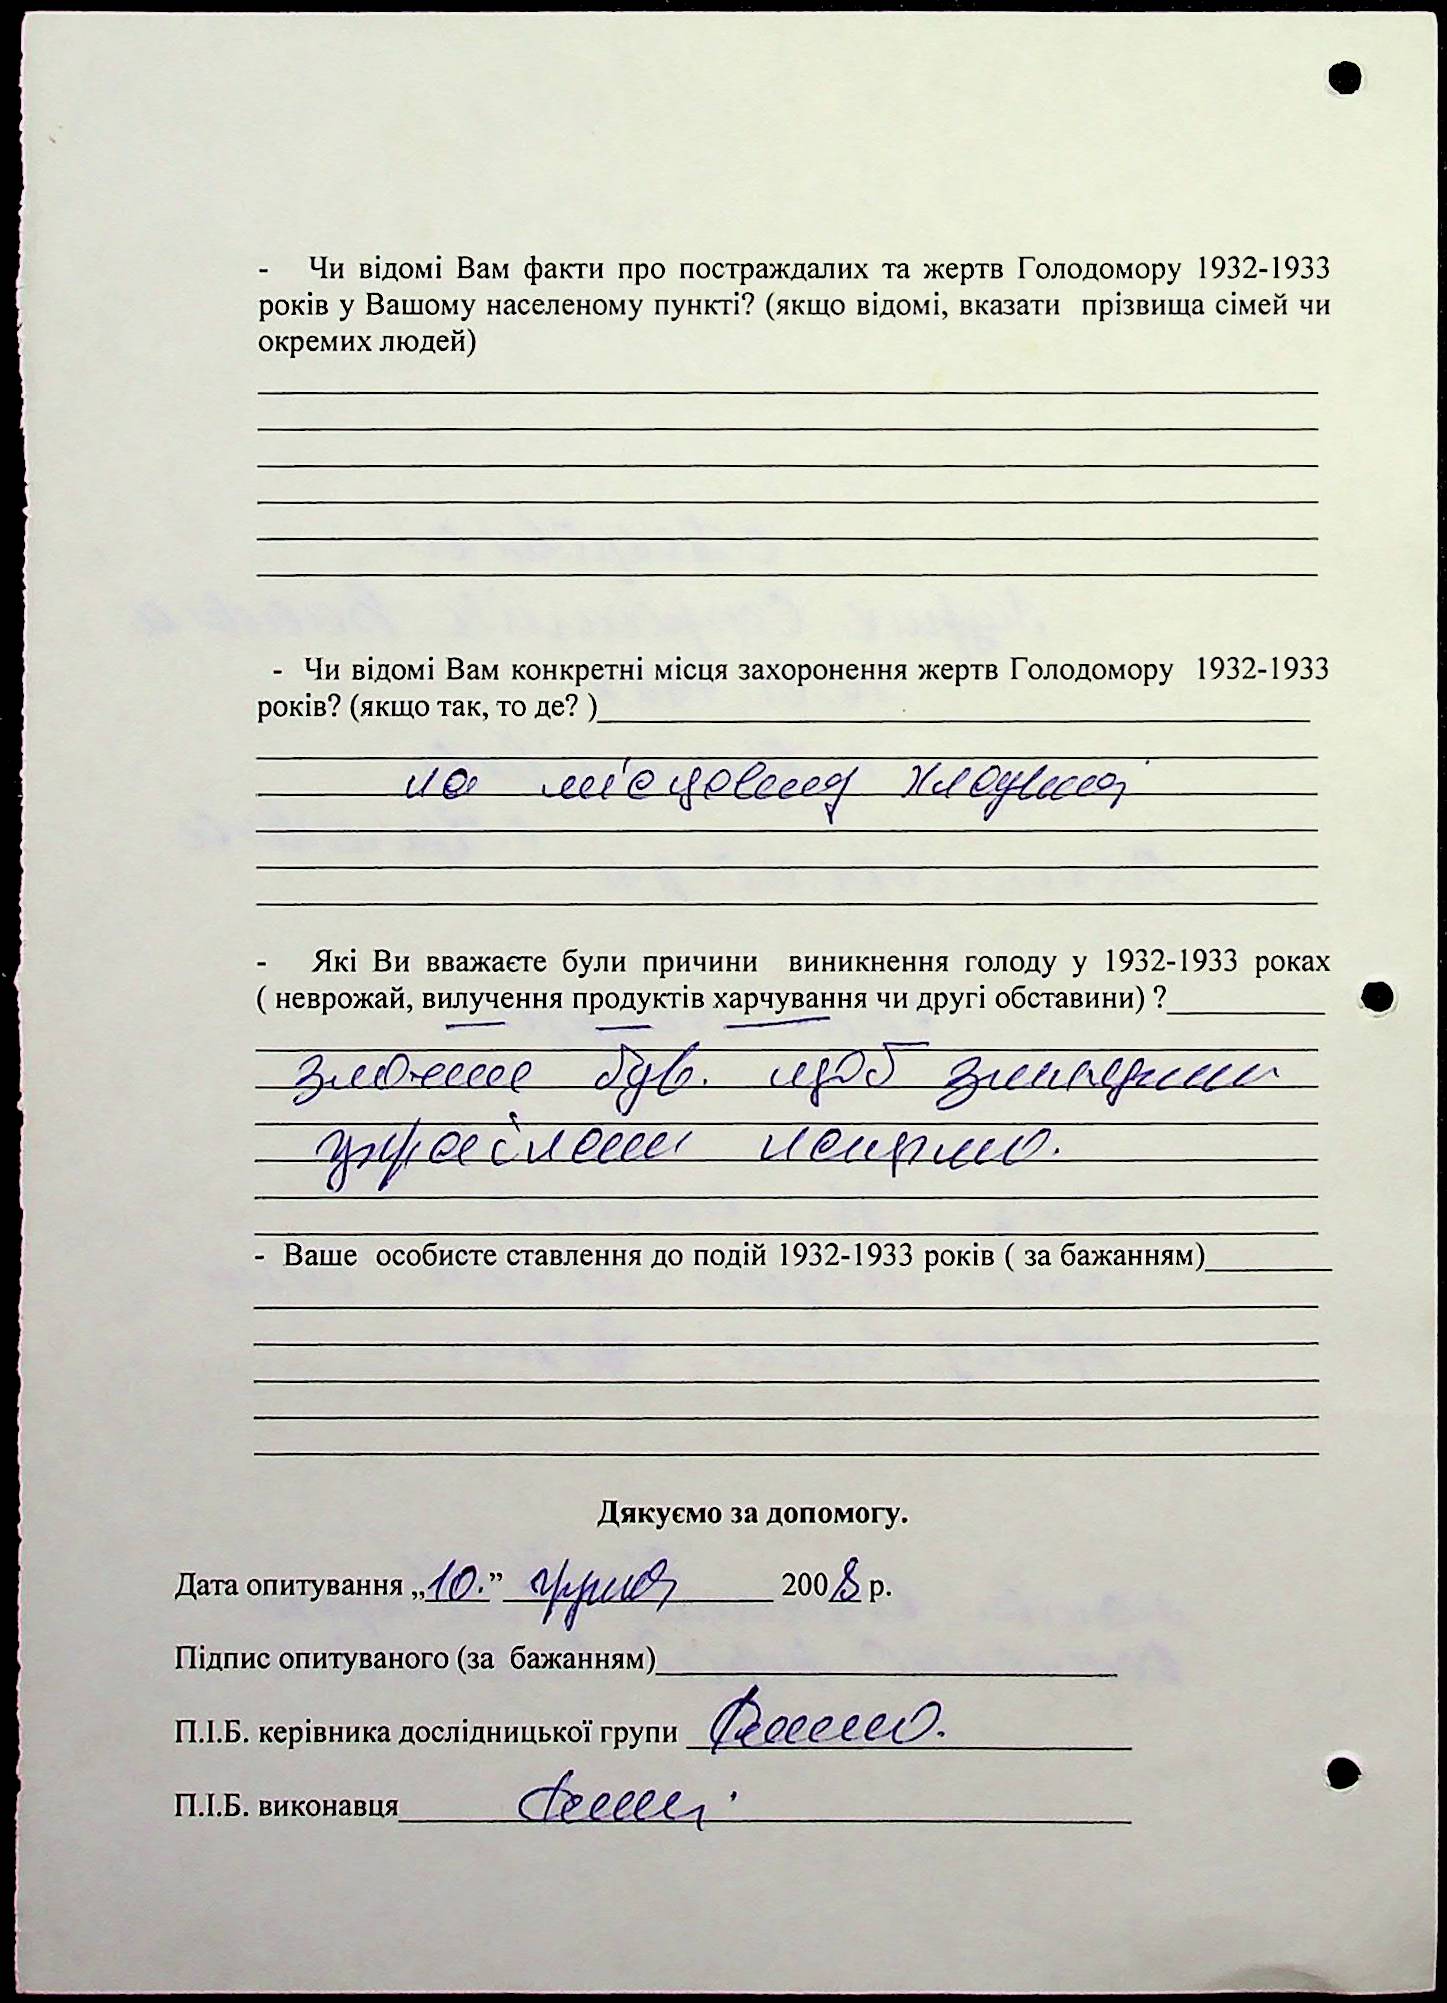 - Чи відомі Вам факти про постраждалих та жертв Голодомору 1932-1933
років у Вашому населеному пункті? (якщо відомі, вказати прізвища сімей чи
окремих людей)
- Чи відомі Вам конкретні місця захоронення жертв Голодомору 1932-1933
років? (якщо так, то де? )
на місцевому кладовищі
- Які Ви вважаєте були причини виникнення голоду у 1932-1933 роках
( неврожай, вилучення продуктів харчування чи другі обставини) ?
був. щоб знищити
україське
- Ваше особисте ставлення до подій 1932-1933 років ( за бажанням)
Дякуємо за допомогу.
Дата опитування „10.” грудня 2008 р.
Підпис опитуваного (за бажанням)
П.І.Б. керівника дослідницької групи
П.І.Б. виконавця